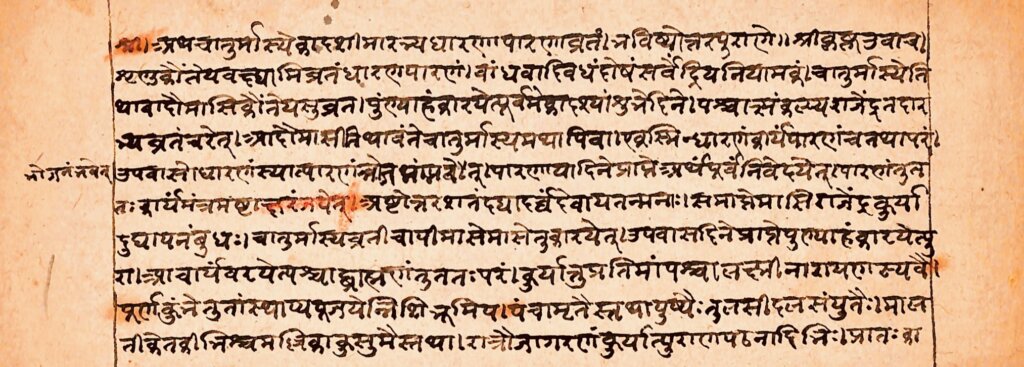 श्रीः। अथ चातुर्मास्ये एकादशीमारभ्य धारणापारणाव्रतं। भविष्योत्तरपुराणे॥ श्रीकृष्ण उवाच।
शृणु कौंतेय वक्ष्यामि व्रतं धारणपारणं। बांधवादिवधं दोषं सर्वेंद्रियनियामकं। चातुर्मास्येति
थावादौ मासि कौंतेय सुव्रत। पुण्याहं कारयेत्पूर्वमेकादश्यां शुभे दिने। पश्चात्संकल्प्य राजेंद्र तदार
भ्य व्रतं चरेत्। आदौ मासी तिथावंते चातुर्मास्यमथापि वा। एकस्मिन्धारणं कार्यं पारणं च तथापरे।
भोजनं भवेत्
उपवासो धारणं स्यात्पारणं पारणाया दिने प्राप्ते अर्घ्यं पूर्वं निवेदयेत्। पारणं तु त
तः कार्यं मंत्रमष्टाक्षरं जपेत्। अष्टोत्तरशतं दद्यादर्घ्यं देवाय तन्मनाः। समाप्ते मासि राजेंद्र कुर्या
दुद्यापनं बुधः। चातुर्मास्यव्रती चापी मासे मासे तु कारयेत्। उपवासदिने प्राप्ते पुण्याहं कारयेत्पु
रा। आचार्यं वरयेत्पश्चाद्ब्राह्मणं तु ततः परं। कुर्यात्तु प्रतिमां पश्चाल्लक्ष्मीनारायणस्य वै।
पूर्णकुंभे तु तां स्थाप्य पूजयेन्निशि भूमिप। पंचामृतैस्तथा पुष्पैः तुलसीदलसंयुतैः। माल
तीकेतकीभिश्च मल्लिकाकुसुमैस्तथा। रात्रौ जागरणं कुर्यात्पुराणपठनादिभिः। प्रातःका